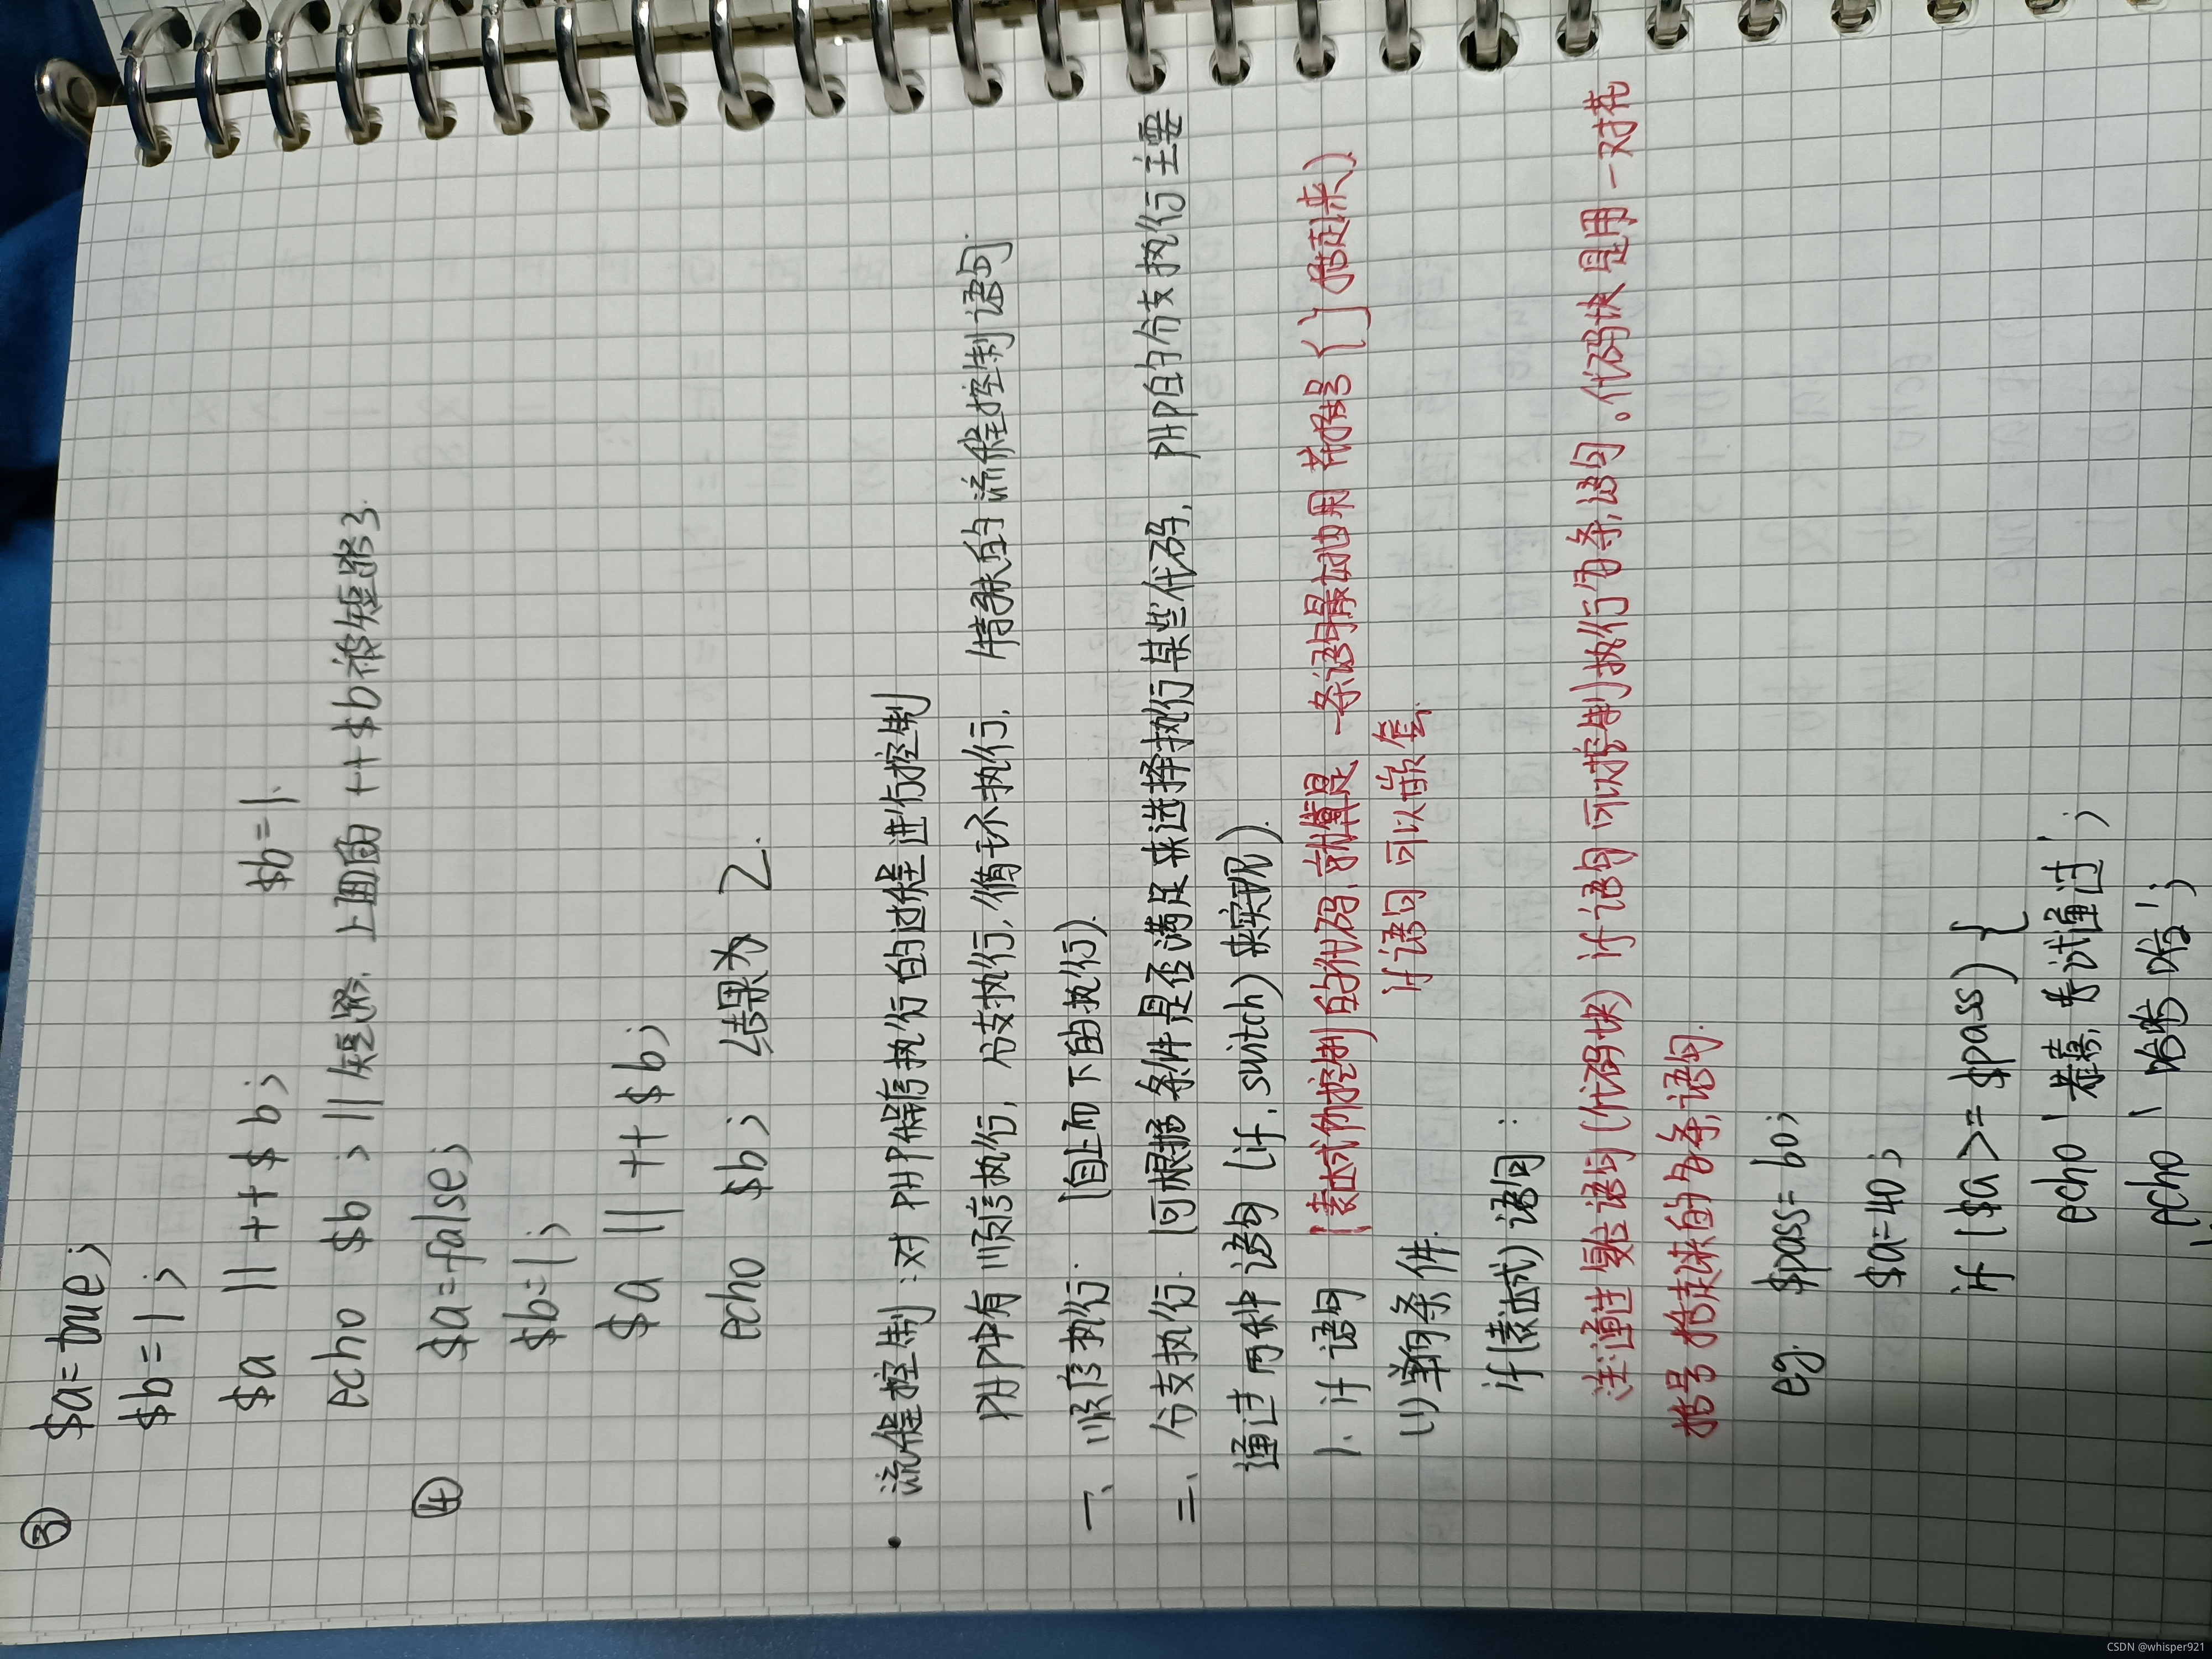 ③ $a=true;
$b=1;
$a || ++$b; $b=1.
echo $b; || 短路. 上面的 ++$b被短路了.
④ $a=false;
$b=1;
$a || ++$b;
echo $b; 结果为 2.
• 流程控制:对PHP程序执行的过程进行控制
PHP中有顺序执行, 分支执行,循环执行, 特殊的流程控制语句.
一、顺序执行. (自上而下的执行).
二、分支执行. (可根据条件是否满足来选择执行某些代码, PHP的分支执行主要
通过两种语句 (if, switch) 来实现).
1. if 语句 (表达式你控制的代码,就算是一条语句最好也用花括号{}括起来)
(1) 单条件. if 语句可以嵌套.
if(表达式)语句:
注:通过复合语句(代码块) if语句可以控制执行多条语句。代码块是用一对花
括号括起来的多条语句.
eg. $pass=60;
$a=40;
if ($a >= $pass) {
echo '恭喜,考试通过';
echo '哈哈哈';
CSDN @whisper921